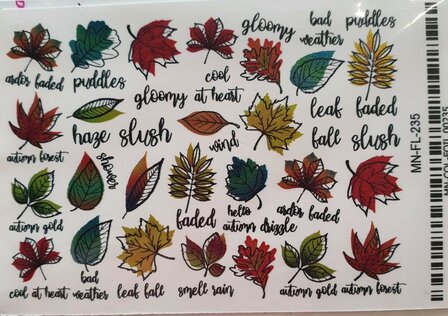 gloomy
bad
weather
puddles
ardor faded
puddles
cool
gloomy at heart
leaf faded
haze slush
wind
fall slush
autumn forest
shower
autumn gold
faded
hello
autumn drizzle
ardor faded
cool at heart
bad
weather
leaf fall
smell rain
autumn gold
autumn forest
MN-FL-235